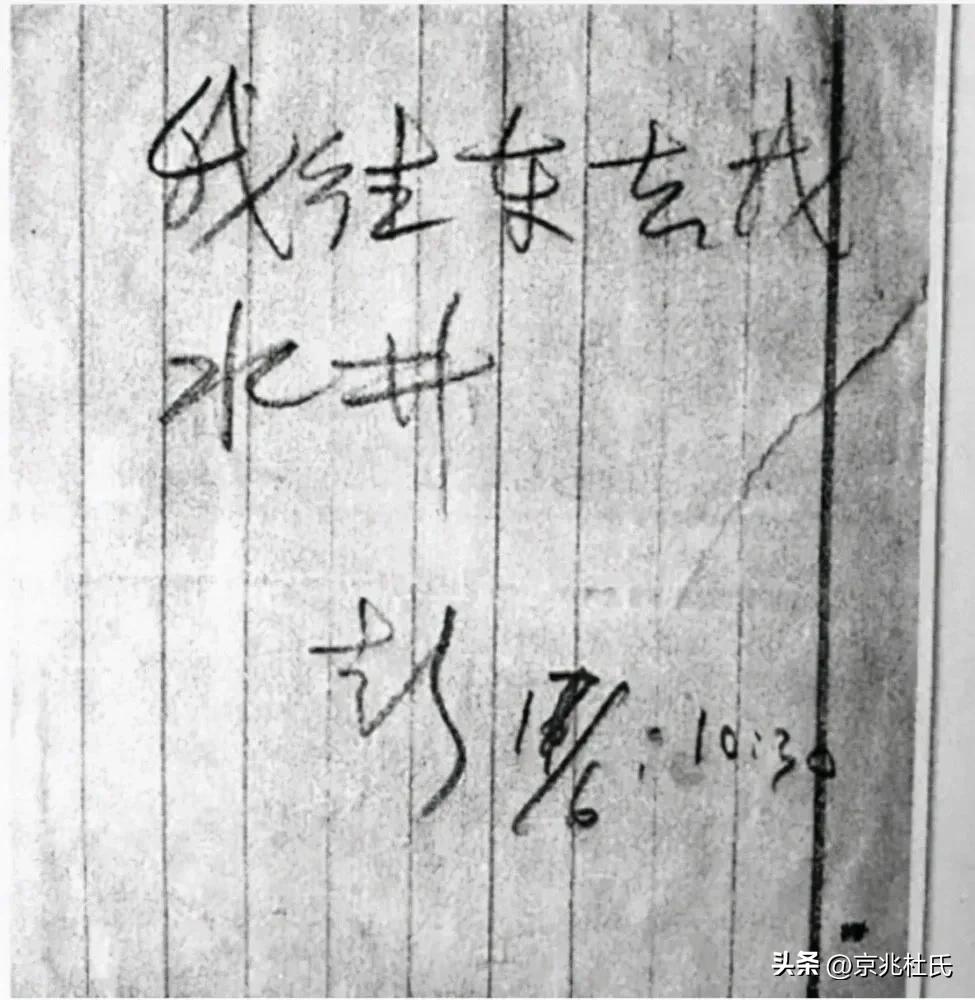 我往东去找
水井
彭 17/6: 10:30
头条 @京兆杜氏